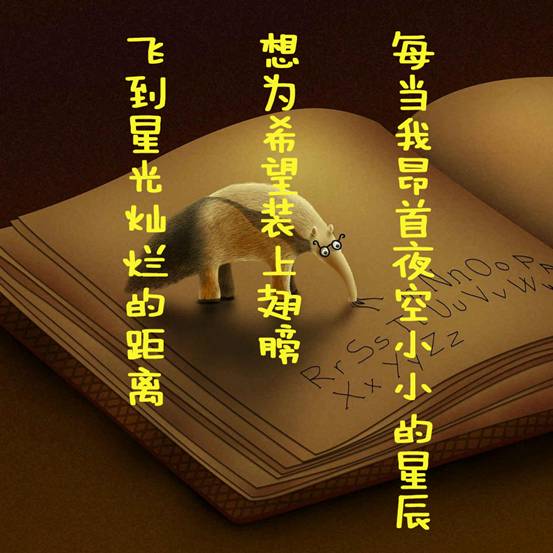 每当我昂首夜空小小的星辰
想为希望装上翅膀
飞到星光灿烂的距离
NnOoPp
UuVvWw
RrSs
XxYyZz